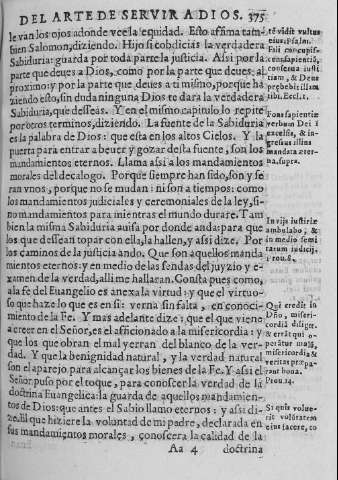 DEL ARTE DE SERVIR A DIOS. 375
le van los ojos adonde vee la equidad. Esto afirma tam-
bien Salomon, diziendo. Hijo si cobdicias la verdadera
Sabiduria: guarda por toda parte la justicia. Assi por la
parte que deues a Dios, como por la parte que deues al
proximo: y por la parte que deues a ti mismo, porque ha
ziendo esto, sin duda ninguna Dios te dara la verdadera
Sabiduria, que desseas. Y en el mismo capitulo lo repite
por otros terminos, diziendo. La fuente de la Sabiduria
es la palabra de Dios: que esta en los altos Cielos. Y la
puerta para entrar a beuer y gozar desta fuente, son los
mandamientos eternos. Llama assi a los mandamientos
morales del decalogo. Porque siempre han sido, son y se
ran vnos, porque no se mudan: ni son a tiempos: como
los mandamientos judiciales y ceremoniales de la ley, si-
no mandamientos para mientras el mundo durare. Tam
bien la misma Sabiduria auisa por donde anda: para que
los que dessean topar con ella, la hallen, y assi dize. Por
los caminos de la justicia ando. Que son aquellos manda
mientos eternos: y en medio de las sendas del juyzio y e-
xamen de la verdad, alli me hallaran. Consta pues como,
a la fè del Euangelio es anexa la virtud: y que el virtuo-
so que haze lo que es en si: verna sin falta, en conoci-
miento de la Fe. Y mas adelante dize: que el que viene
a creer en el Señor, es el afficionado a la misericordia: y
que los que obran el mal yerran del blanco de la ver-
dad. Y que la benignidad natural, y la verdad natural
son el aparejo para alcançar los bienes de la Fe. Y assi el
Señor puso por el toque, para conoscer la verdad de la
doctrina Euangelica: la guarda de aquellos mandamien-
tos de Dios: que antes el Sabio llamo eternos: y assi di-
ze. El que hiziere la voluntad de mi padre, declarada en
sus mandamientos morales, conoscera la calidad de la
Aa 4 doctrina
te vidit vultus
eius, Psalm.
Fili concupis-
cens sapientiã,
conserua justi
tiam, & Deus
præbebit illam
tibi. Eccl. 1.
Fons sapientiæ
verbum Dei i
excelsis, & in-
gressus illius
mandata æter-
na, supra.
In vijs iustitiæ
ambulabo, &
in medio semi
tarum iudicij.
Prou. 8.
Qui credit in
Dño, miseri-
cordiã diligit.
& errãt qui o-
perãtur malũ,
misericordia &
veritas præpa-
rant bona.
Prou. 14.
Si quis volue-
rit volũtatem
eius facere, co